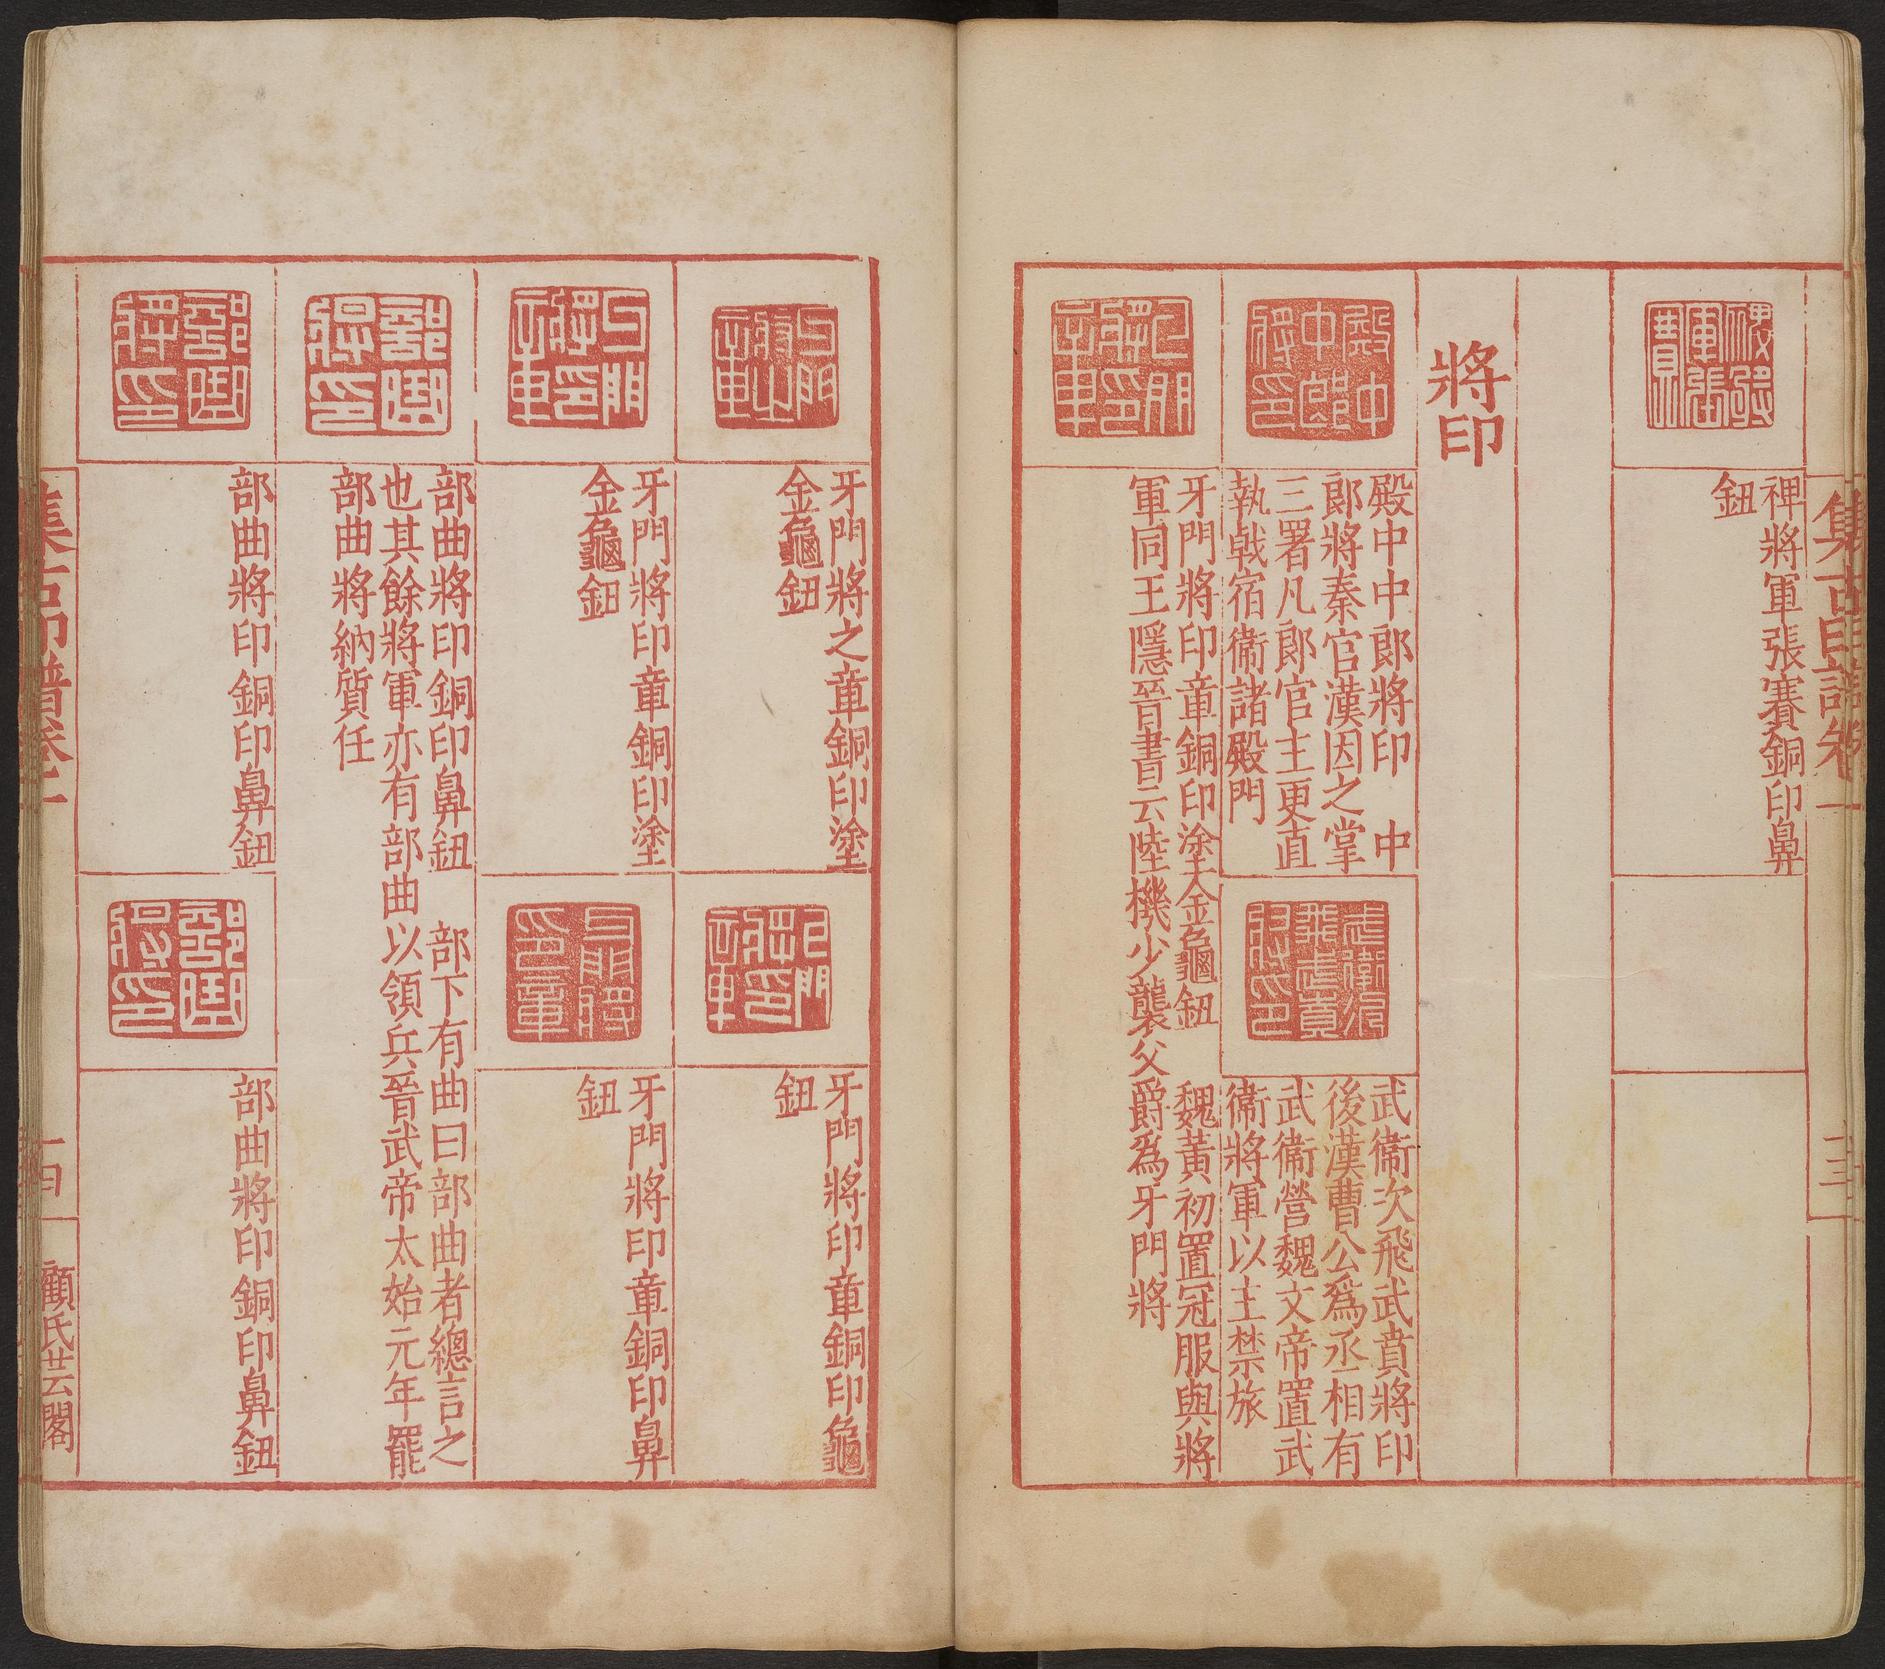 集古印譜卷一
十三
裨將軍張賽銅印鼻
鈕
將印
殿中中郎將印 中
郎將秦官漢因之掌
三署凡郎官主更直
執戟宿衞諸殿門
武衞次飛武賁將印
後漢曹公爲丞相有
武衞營魏文帝置武
衞將軍以主禁旅
牙門將印章銅印塗金龜鈕 魏黃初置冠服與將
軍同王隱晉書云陸機少襲父爵爲牙門將
牙門將之章銅印塗
金龜鈕
牙門將印章銅印龜
鈕
牙門將印章銅印塗
金龜鈕
牙門將印章銅印鼻
鈕
部曲將印銅印鼻鈕 部下有曲曰部曲者總言之
也其餘將軍亦有部曲以領兵晉武帝太始元年罷
部曲將納質任
部曲將印銅印鼻鈕
部曲將印銅印鼻鈕
集古印譜卷一
十四
顧氏芸閣